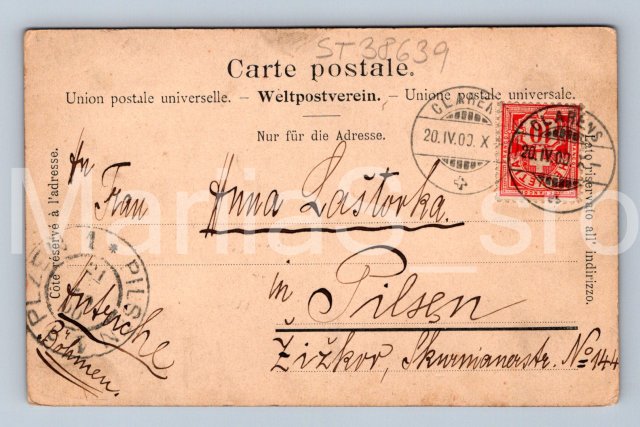 ST38639
Carte postale.
Union postale universelle. – Weltpostverein. – Unione postale universale.
Nur für die Adresse.
CLARENS
20.IV.00. X
CLARENS
20.IV.00
Côté réservé à l'adresse.
Lato riservato all' indirizzo.
An
Frau Anna Laštovka.
in Pilsen
Žižkov, Skurnianerstr. No 144
Böhmen.
PILSEN 1